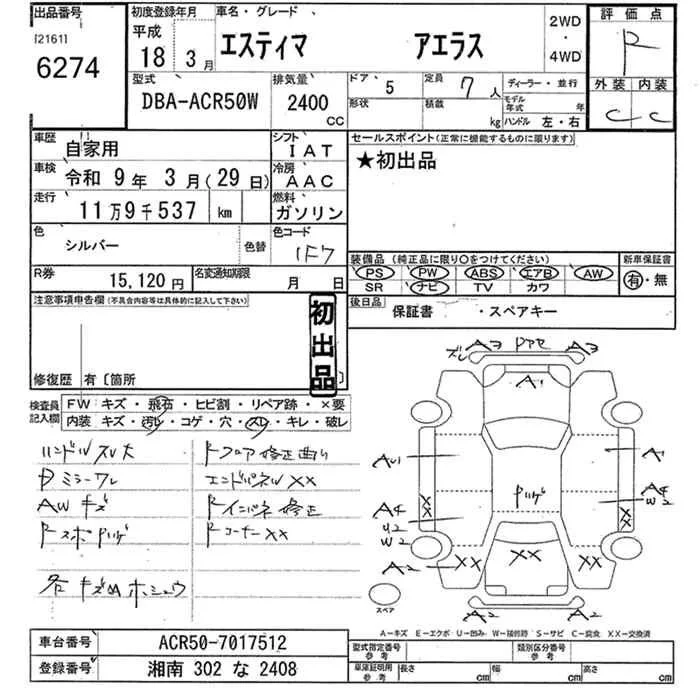 出品番号
[2161]
6274
初度登録年月
平成
18年 3月
車名・グレード
エスティマ アエラス
2WD
・
4WD
評価点
R
外装 内装
C C
型式
DBA-ACR50W
排気量
2400
CC
ドア 5
形状
定員 7人
積載 kg
ディーラー・並行
モデル年式 年
ハンドル 左・右
車歴 自家用
シフト IAT
車検 令和 9年 3月(29日)
冷房 AAC
走行 11万9千537 km
燃料 ガソリン
色 シルバー 色替
色コード 1F7
R券 15,120円
名変通知期限 月 日
セールスポイント(正常に機能するものに限ります)
★初出品
装備品(純正品に限り○をつけてください)
PS PW ABS エアB AW
SR ナビ TV カワ
新車保証書
有・無
後日品 保証書 ・スペアキー
注意事項申告欄(不具合内容等は具体的に記入して下さい)
初出品
修復歴 有〔箇所 〕
検査員記入欄
FW キズ・飛石・ヒビ割・リペア跡・×要
内装 キズ・汚レ・コゲ・穴・スレ・キレ・破レ
ハンドルスレ大
Rフロア修正曲り
Pミラーワレ
エンドパネルXX
AWキズ
Rインパネ修正
RコーナーXX
各キズAホシュウ
A3 A3
A1
AU1
A1
A4
U2
W2
A4
W2
XX
XX
A2 XX XX XX
A2 A2
スペア
A-キズ E-エクボ U-凹み W-補修跡 S-サビ C-腐食 XX-交換済
車台番号 ACR50-7017512
登録番号 湘南 302 な 2408
型式指定番号
参考
類別区分番号
参考
車庫証明用
参考
長さ cm
幅 cm
高さ cm